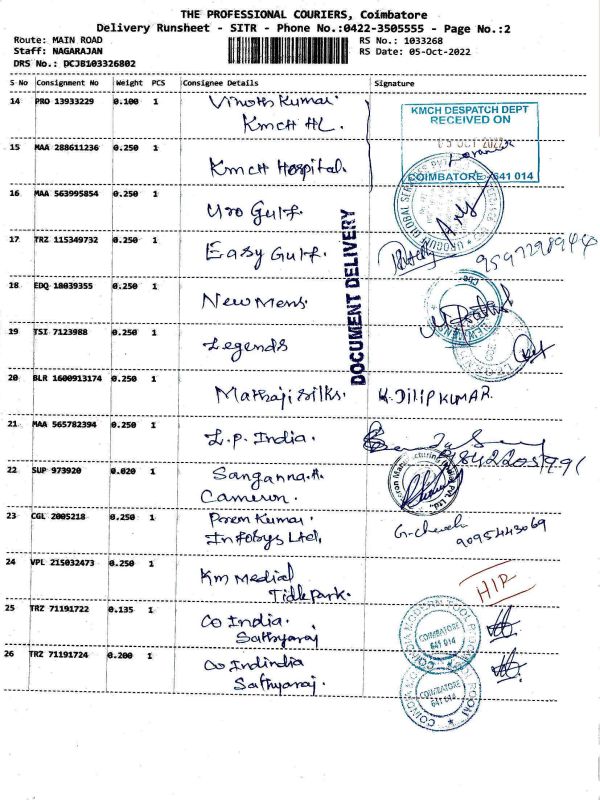 THE PROFESSIONAL COURIERS, Coimbatore
Delivery Runsheet - SITR - Phone No.:0422-3505555 - Page No.:2
Route: MAIN ROAD
RS No.: 1033268
Staff: NAGARAJAN
RS Date: 05-Oct-2022
DRS No.: DCJB103326802
S No Consignment No Weight PCS Consignee Details Signature
14 PRO 13933229 0.100 1 Vinoth Kumar.
KMCH HL.
KMCH DESPATCH DEPT
RECEIVED ON
05 OCT 2022
COIMBATORE - 641 014
15 MAA 288611236 0.250 1 KMCH Hospital.
16 MAA 563995854 0.250 1 Uro Gulf.
17 TRZ 115349732 0.250 1 Easy Gulf.
DOCUMENT DELIVERY
18 EDQ 18039355 0.250 1 New Mens.
19 TSI 7123988 0.250 1 Legends
20 BLR 1600913174 0.250 1 Mathaji Silks. K. DILIP KUMAR.
21 MAA 565782394 0.250 1 L.P. India.
22 SUP 973920 0.020 1 Sanganna.A.
Cameron.
23 CGL 2005218 0.250 1 Prem Kumar.
Infosys Ltd. 9095443069
24 VPL 215032473 0.250 1 Km Medial
Tidle Park.
25 TRZ 71191722 0.135 1 Co India.
Sathyaraj
COIMBATORE
641 014
26 TRZ 71191724 0.200 1 Co Indindia
Sathyaraj.
COIMBATORE
641 014